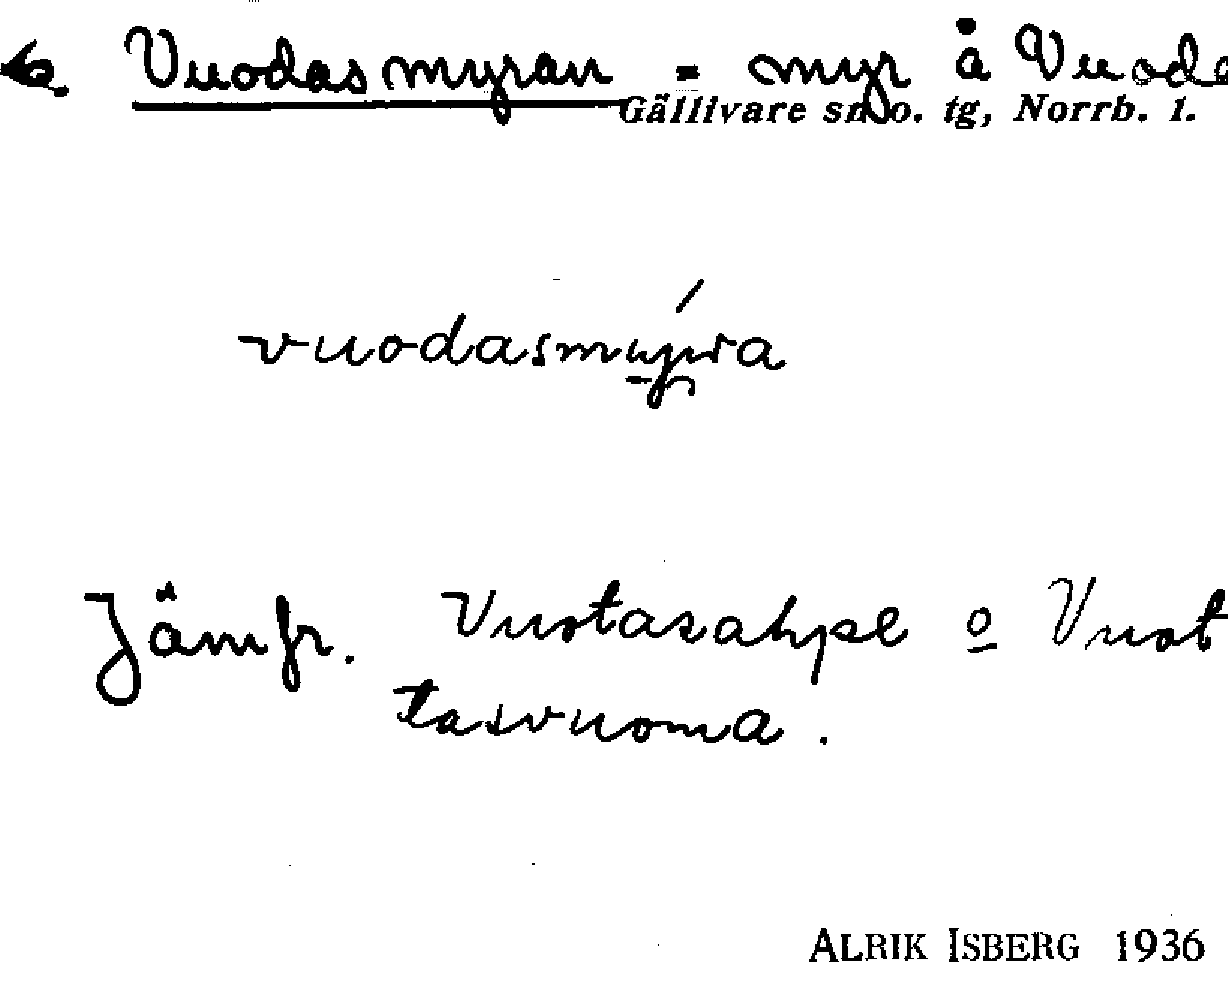 6. Vuodasmyran = myr å Vuoda
Gällivare sn o. tg, Norrb. l.
vuodasmýra
Jämfr. Vuotasahpe o Vuot
tasvuoma.
ALRIK ISBERG 1936